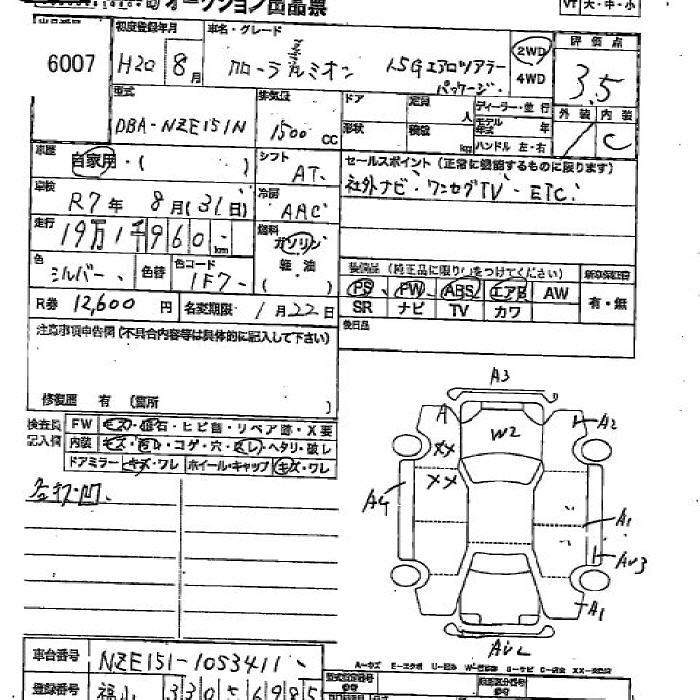 オークション出品票
VT 大・中・小
6007
初度登録年月
H20 8月
車名・グレード
カローラルミオン 1.5Gエアロツアラー
パッケージ
2WD
4WD
評価点
3.5
外装 内装
C
型式
DBA-NZE151N
排気量
1500 CC
ドア
定員
人
形状
積載
kg
ディーラー・並行
モデル年式 年
ハンドル 左・右
車歴
自家用・( )
シフト
AT
セールスポイント(正常に機能するものに限ります)
社外ナビ・ワンセグTV・ETC
車検
R7年 8月(31日)
冷房
AAC
走行
19万1千960 km
燃料
ガソリン
軽・油
( )
色
シルバー
色替
色コード
1F7
装備品(純正品に限り○をつけてください)
PS PW ABS エアB AW
SR ナビ TV カワ
新車保証書
有・無
R券 12,600円
名変期限 1月22日
後日品
注意事項申告欄(不具合内容等は具体的に記入して下さい)
修復歴 有(箇所 )
検査員
記入欄
FW キズ・飛石・ヒビ割・リペア跡・X要
内装 キズ・汚れ・コゲ・穴・スレ・ヘタリ・破レ
ドアミラー キズ・ワレ ホイール・キャップ キズ・ワレ
A3
A
A2
W2
XX
XX
A4
A1
AU3
A1
AU2
車台番号 NZE151-1053411
A-キズ E-エクボ U-凹み W-波 S-サビ C-腐食 XX-交換済
登録番号 福山 330 6985